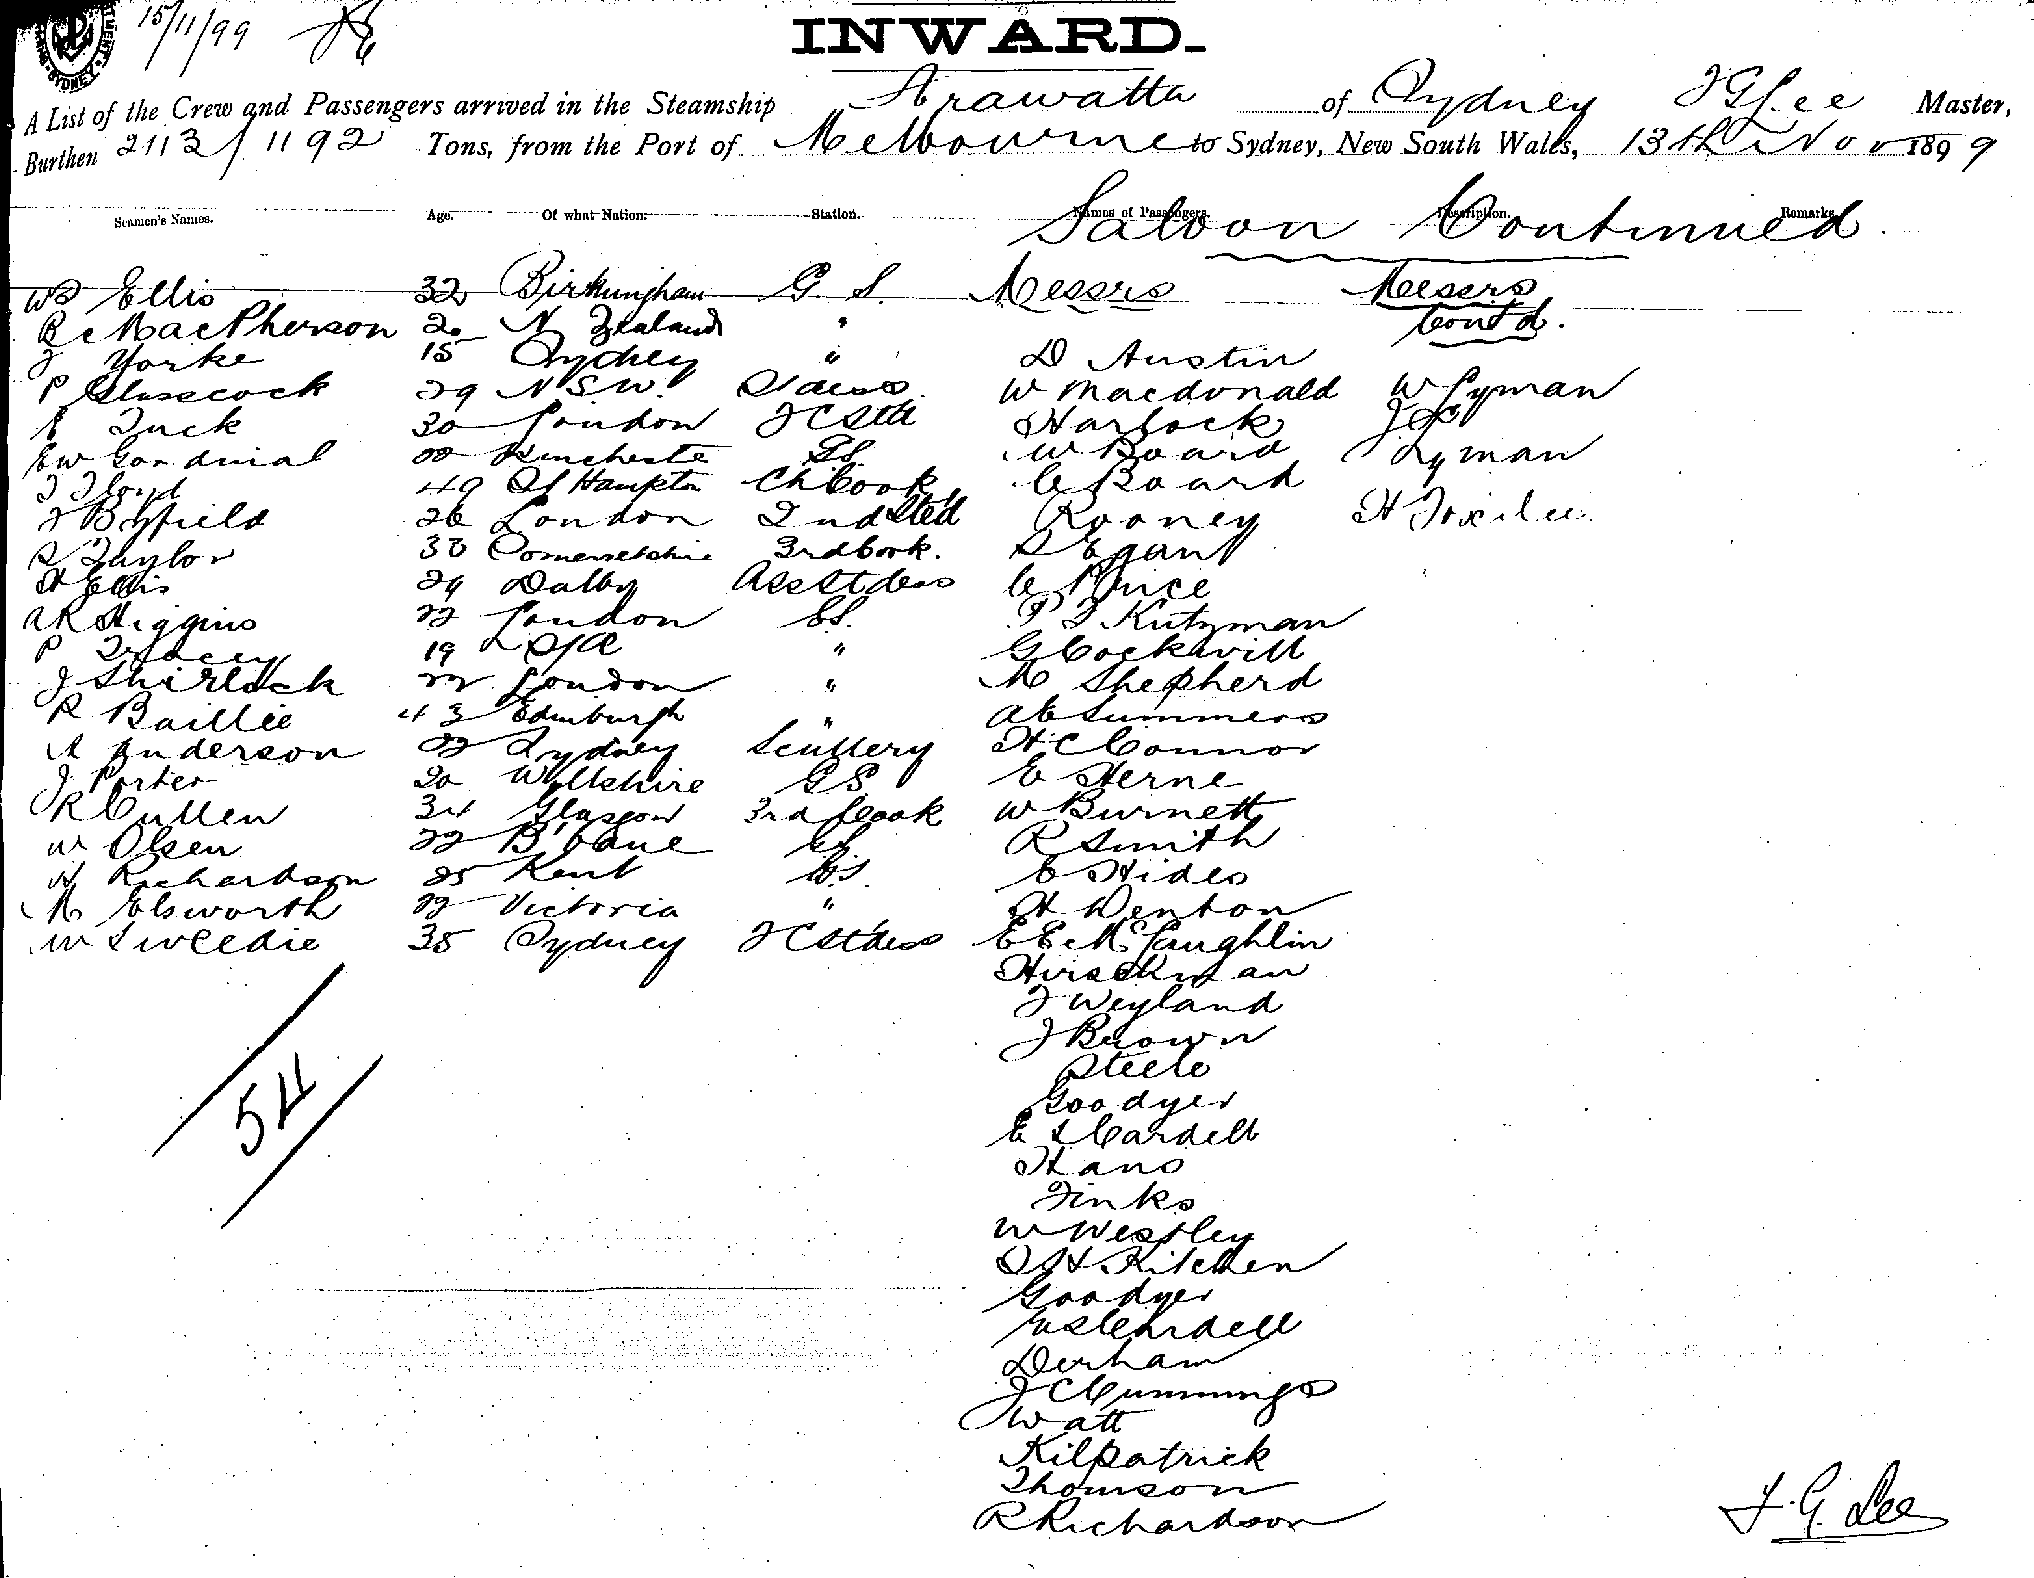 15/11/99
INWARD.
A List of the Crew and Passengers arrived in the Steamship Arawatta of Sydney J G Lee Master,
Burthen 2113/1192 Tons, from the Port of Melbourne to Sydney, New South Wales, 13th Nov 1899
Seamen's Names. Age. Of what Nation. Station. Names of Passengers. Description. Remarks.
Saloon Continued
Ellis 32 G. S. Messrs Messrs
MacPherson 20 N Zealand " Contd.
J Yorke 15 Sydney " D Austin
P Glasscock 29 N.S.W. W Macdonald W Lyman
Tuck 30 London Harlock
EW 22 GS. W Board Lyman
49 Ch Cook C Board
J Byfield 26 London 2nd Sted Rooney H
S Taylor 33 Somersetshire 3rd Cook. Egan
H Ellis 29 Dalby Ass Stdess C Price
AR Higgins 22 London GS. Kutzman
P Tracey 19 " G Cockwill
J Shirlock 22 London " M Shepherd
R Baillie 43 Edinburgh " A E Summers
A Anderson 22 Sydney Scullery H C Connor
J Porter 20 Wiltshire GS E Herne
R Cullen 34 Glasgow 3rd Cook W Burnett
W Olsen 22 B'bane GS R Smith
H Richardson 25 Kent GS. E Hides
M Elsworth 22 Victoria " H Denton
W Tweedie 35 Sydney FC Stdess E E McLaughlin
Hirschman
J Weyland
J Brown
Steele
Goodyer
E S Cardell
Hans
Jinks
W Westley
S H Kitchen
Goodyer
ES Cardell
Derham
J C Cummings
Watt
Kilpatrick
Thomson
R Richardson
54
J. G. Lee